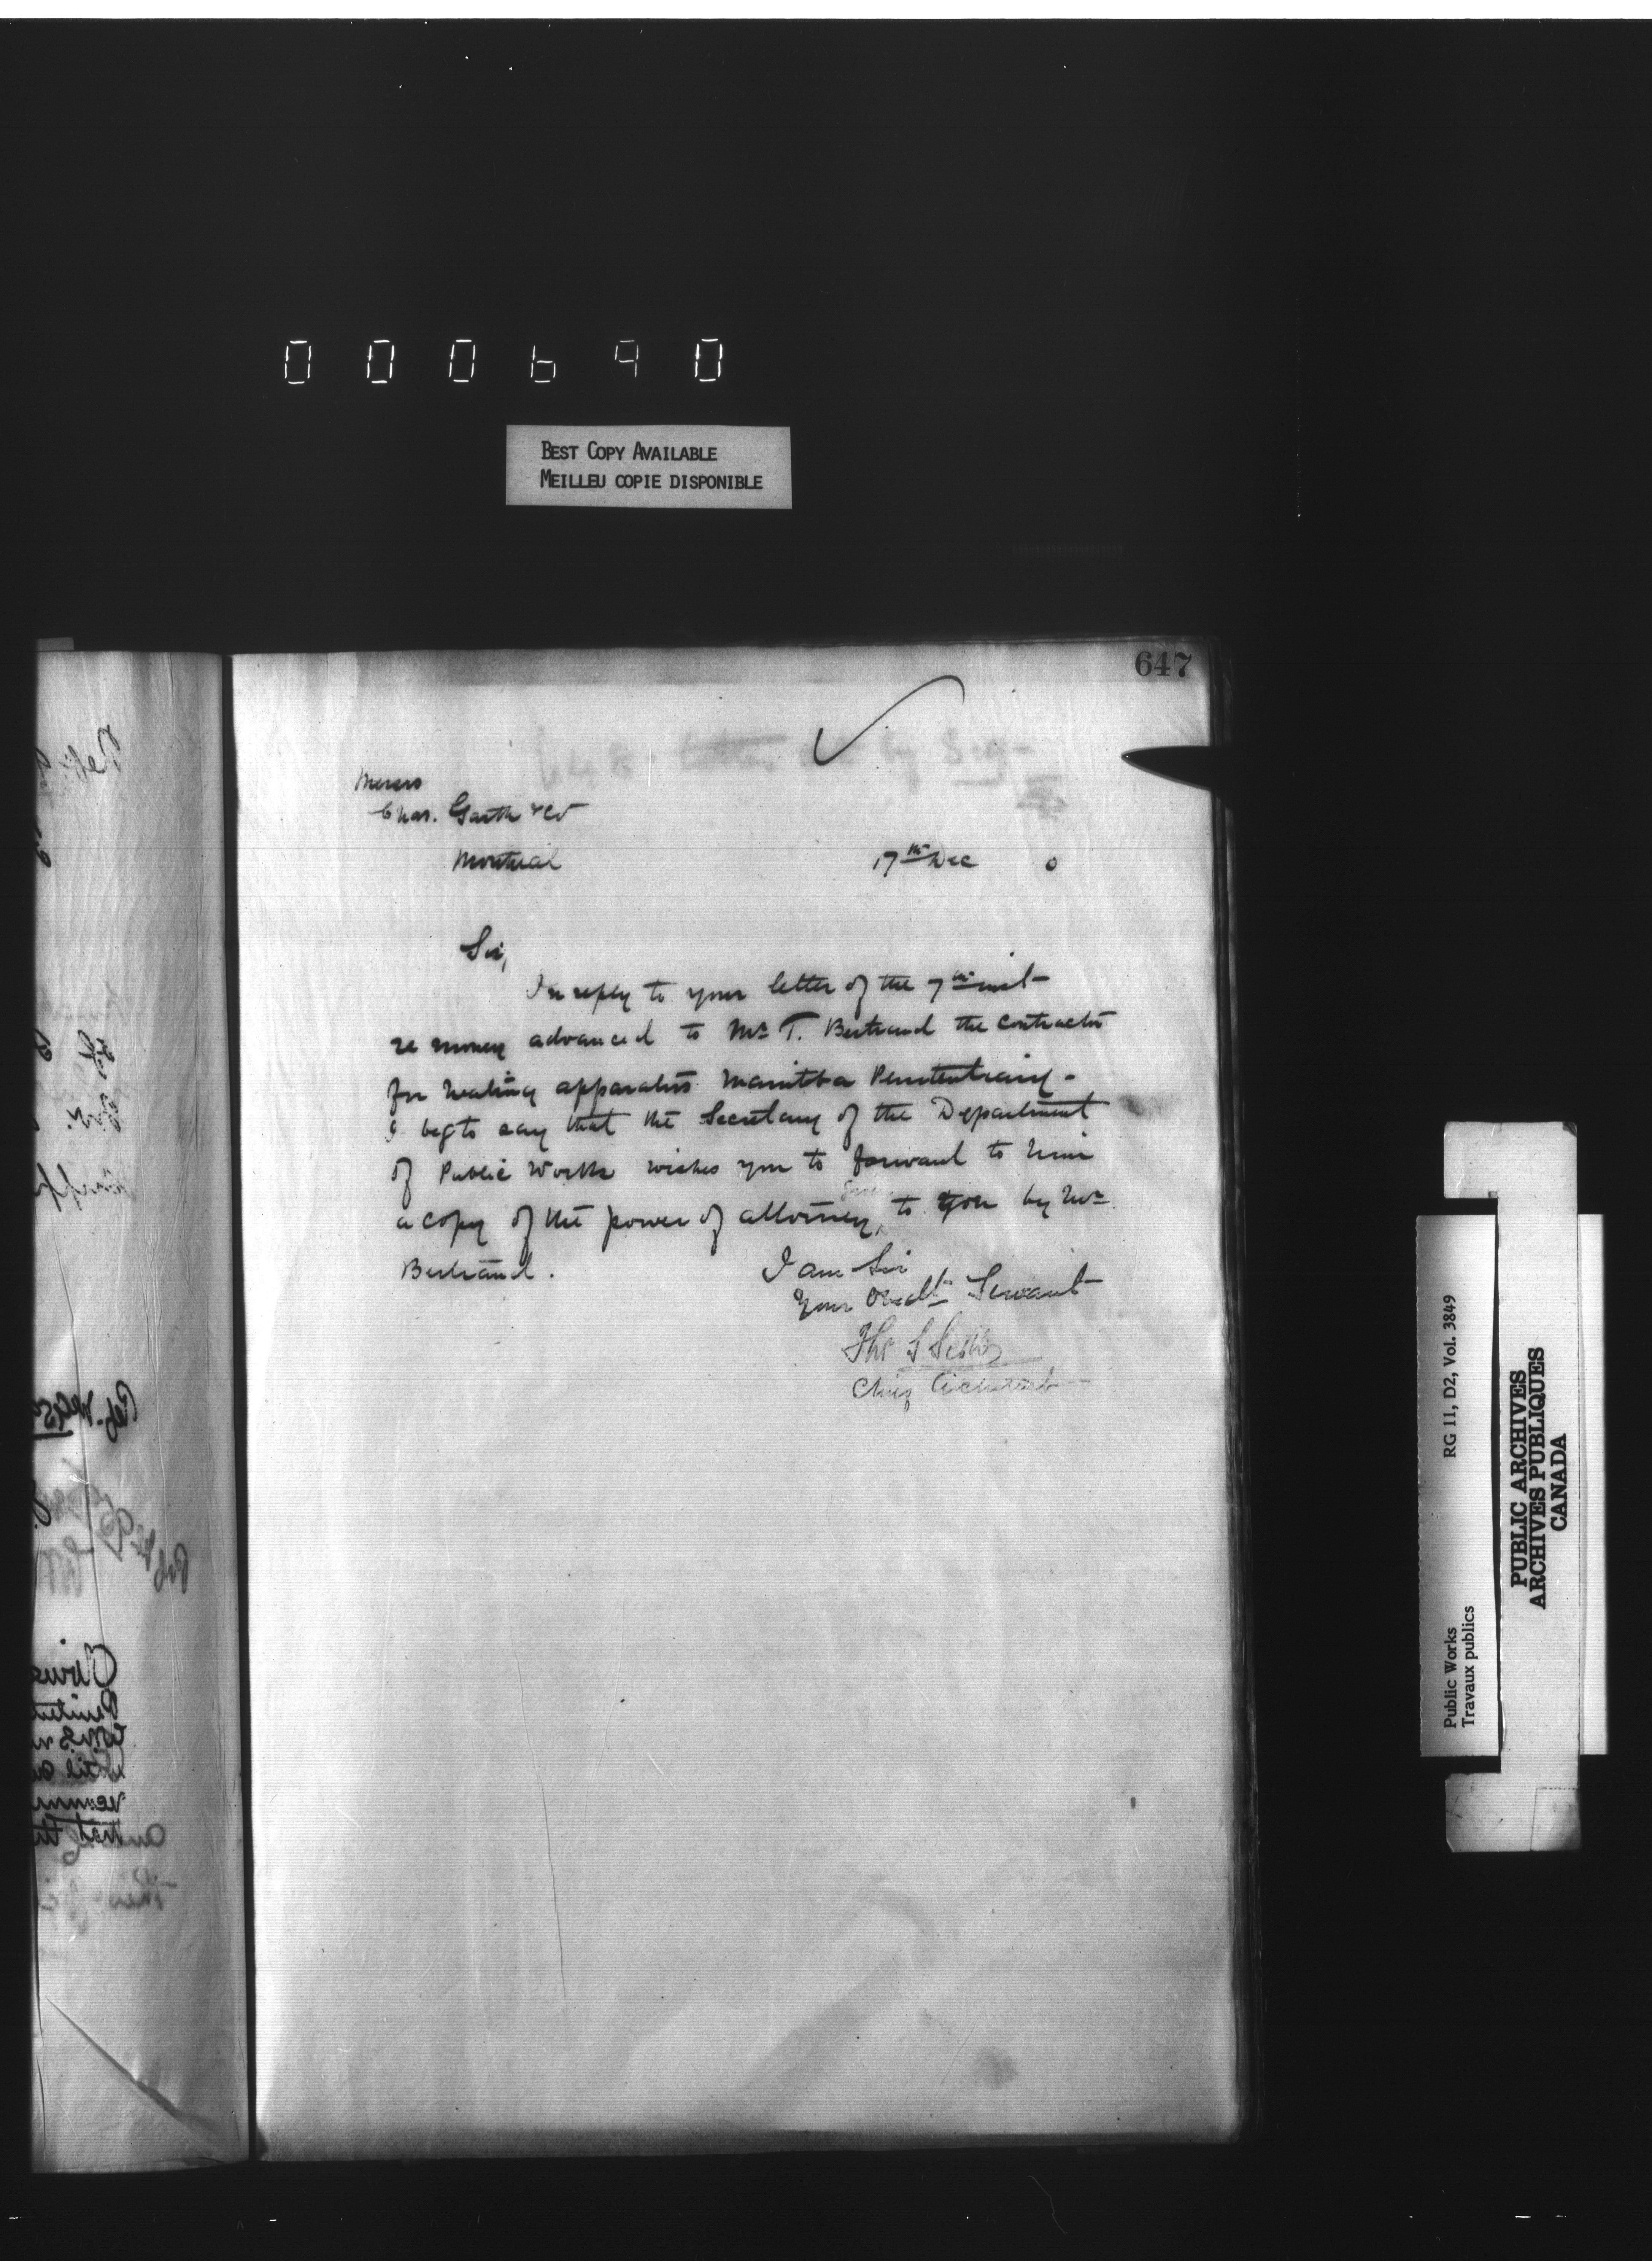 000690
BEST COPY AVAILABLE
MEILLEU COPIE DISPONIBLE
647
Messrs
Chas. Garth & Co
Montreal
17th Dec 0
Sir,
In reply to your letter of the 7th inst
re money advanced to Mr T. Bertrand the contractor
for heating apparatus Manitoba Penitentiary -
I beg to say that the Secretary of the Department
of Public Works wishes you to forward to him
a copy of the power of attorney to you by Mr
Bertrand.
I am Sir
Your Obedt Servant
Thos S Scott
Chief Architect
Public Works
Travaux publics
RG 11, D2, Vol. 3849
PUBLIC ARCHIVES
ARCHIVES PUBLIQUES
CANADA